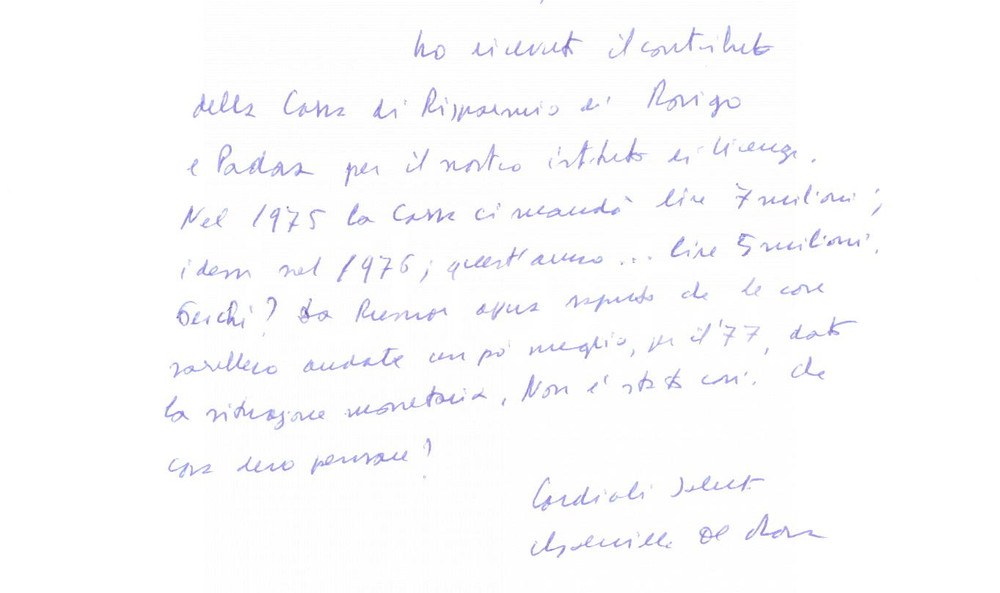 ho ricevuto il contributo
della Cassa di Risparmio di Rovigo
e Padova per il nostro istituto di Vicenza.
Nel 1975 la Cassa ci mandò lire 7 milioni;
idem nel 1976; quest'anno... lire 5 milioni.
Perché? Da Rumor avevo saputo che le cose
sarebbero andate un pò meglio, per il '77, data
la situazione monetaria. Non è stato così. Che
cosa devo pensare?
Cordiali saluti
De Rosa